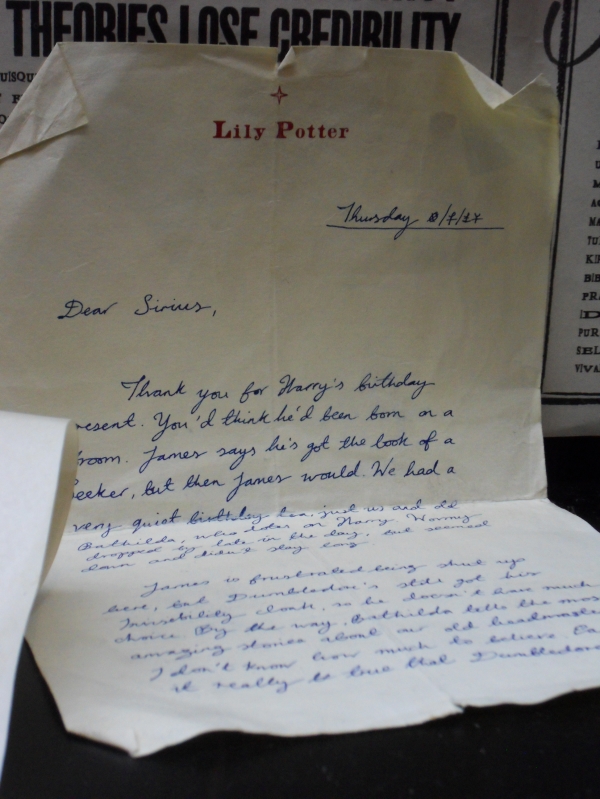 THEORIES LOSE CREDIBILITY
Lily Potter
Thursday
Dear Sirius,
Thank you for Harry's birthday
resent. You'd think he'd been born on a
room. James says he's got the look of a
eeker, but then James would. We had a
very quiet birthday tea, just us and old
Bathilda, who dotes on Harry. Wormy
dropped by late in the day, but seemed
down and didn't stay long.
James is frustrated being shut up
here, but Dumbledore's still got his
Invisibility cloak, so he doesn't have much
choice. By the way, Bathilda tells the most
amazing stories about our old headmaste
I don't know how much to believe. Ca
it really be true that Dumbledore